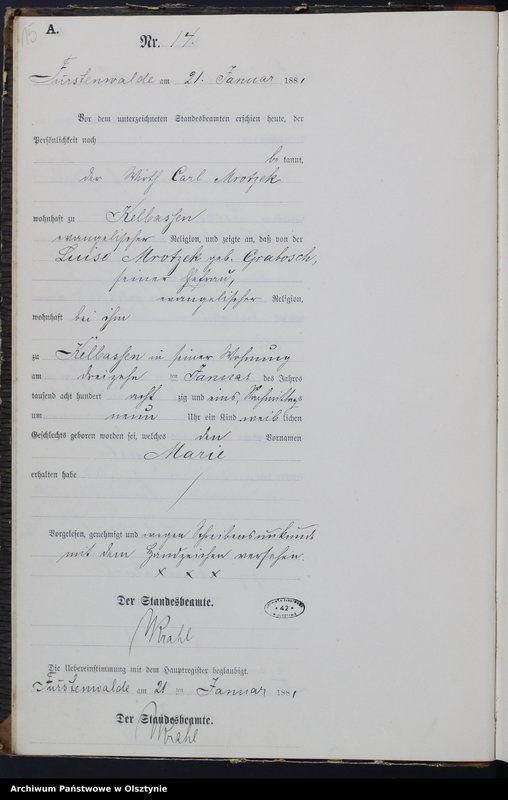 15
A.
Nr. 14.
Fürstenwalde am 21. Januar 1881
Vor dem unterzeichneten Standesbeamten erschien heute, der
Persönlichkeit nach
be kannt,
der Wirth Carl Mrotzek
wohnhaft zu Kelbassen
evangelischer Religion, und zeigte an, daß von der
Luise Mrotzek geb. Grabosch,
seiner Ehefrau,
evangelischer Religion,
wohnhaft bei ihm
zu Kelbassen in seiner Wohnung
am dreizehn ten Januar des Jahres
tausend acht hundert acht zig und eins, Nachmittags
um neun Uhr ein Kind weib lichen
Geschlechts geboren worden sei, welches den Vornamen
Marie
erhalten habe
Vorgelesen, genehmigt und wegen Schreibensunkunde
mit dem Handzeichen versehen.
x x x
Der Standesbeamte.
42
Wrahl
Die Uebereinstimmung mit dem Hauptregister beglaubigt.
Fürstenwalde am 21 ten Januar 1881
Der Standesbeamte.
Wrahl
Archiwum Państwowe w Olsztynie